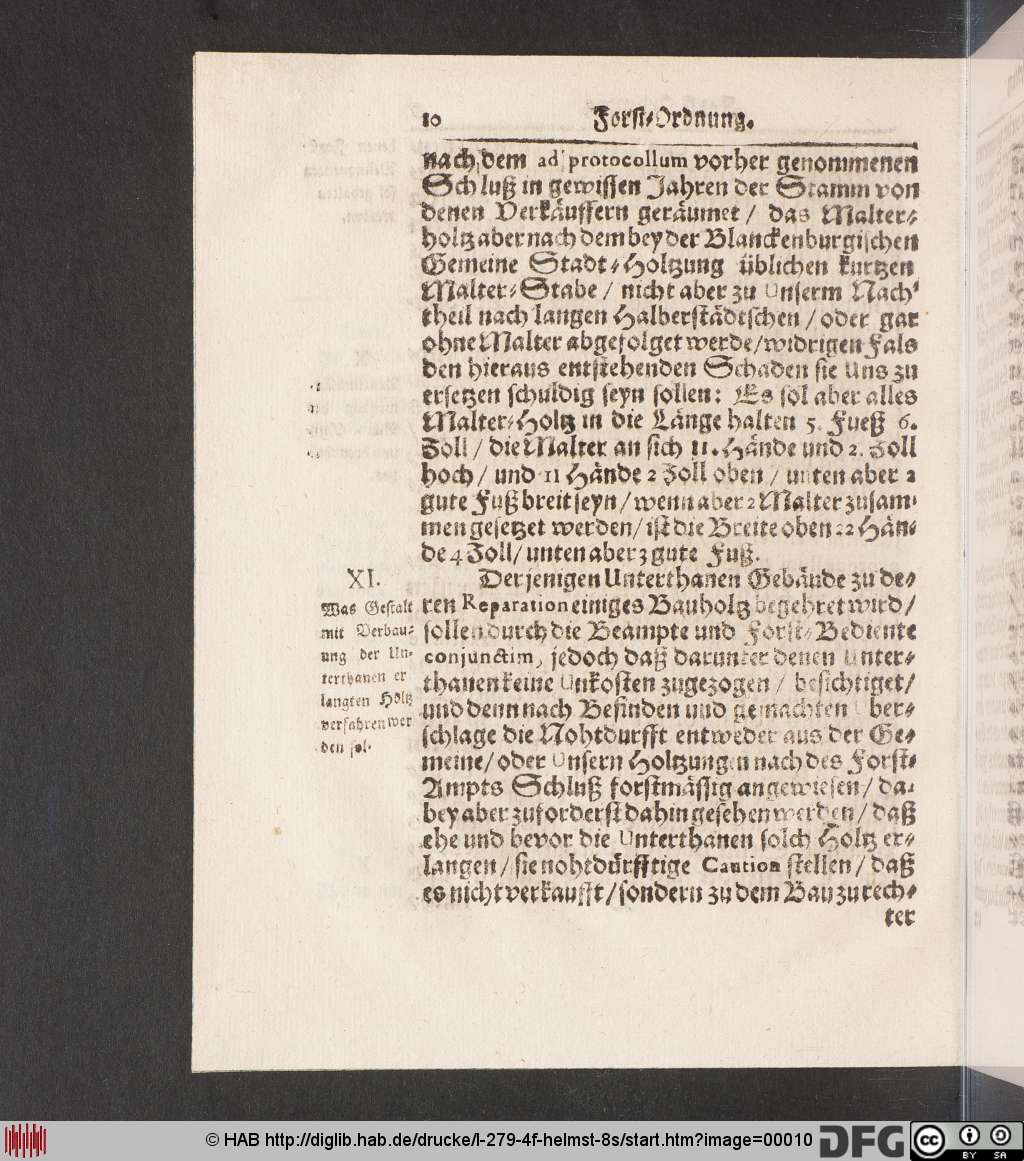 10 Forst-Ordnung.
nach dem ad protocollum vorher genommenen
Schluß in gewissen Jahren der Stamm von
denen Verkäuffern geräumet / das Malter-
holtz aber nach dem bey der Blanckenburgischen
Gemeine Stadt-Holtzung üblichen kurtzen
Malter-Stabe / nicht aber zu Unserm Nach-
theil nach langen Halberstädtschen / oder gar
ohne Malter abgefolget werde / widrigen Fals
den hieraus entstehenden Schaden sie Uns zu
ersetzen schuldig seyn sollen: Es sol aber alles
Malter-Holtz in die Länge halten 5. Fueß 6.
Zoll / die Malter an sich 11. Hände und 2. Zoll
hoch / und 11 Hände 2 Zoll oben / unten aber 2
gute Fuß breit seyn / wenn aber 2 Malter zusam-
men gesetzet werden / ist die Breite oben 22 Hän-
de 4 Zoll / unten aber 3 gute Fuß.
XI.
Was Gestalt
mit Verbau-
ung der Un-
terthanen er
langten Holtz
verfahren wer
den sol.
Derjenigen Unterthanen Gebäude zu de-
ren Reparation einiges Bauholtz begehret wird /
sollen durch die Beampte und Forst-Bediente
conjunctim, jedoch daß darunter denen Unter-
thanen keine Unkosten zugezogen / besichtiget /
und denn nach Befinden und gemachten Uber-
schlage die Nohtdurfft entweder aus der Ge-
meine / oder Unsern Holtzungen nach des Forst-
Ampts Schluß forstmässig angewiesen / da-
bey aber zuforderst dahin gesehen werden / daß
ehe und bevor die Unterthanen solch Holtz er-
langen / sie nohtdürfftige Caution stellen / daß
es nicht verkaufft / sondern zu dem Bau zu rech-
ter
© HAB http://diglib.hab.de/drucke/l-279-4f-helmst-8s/start.htm?image=00010 DFG cc BY SA